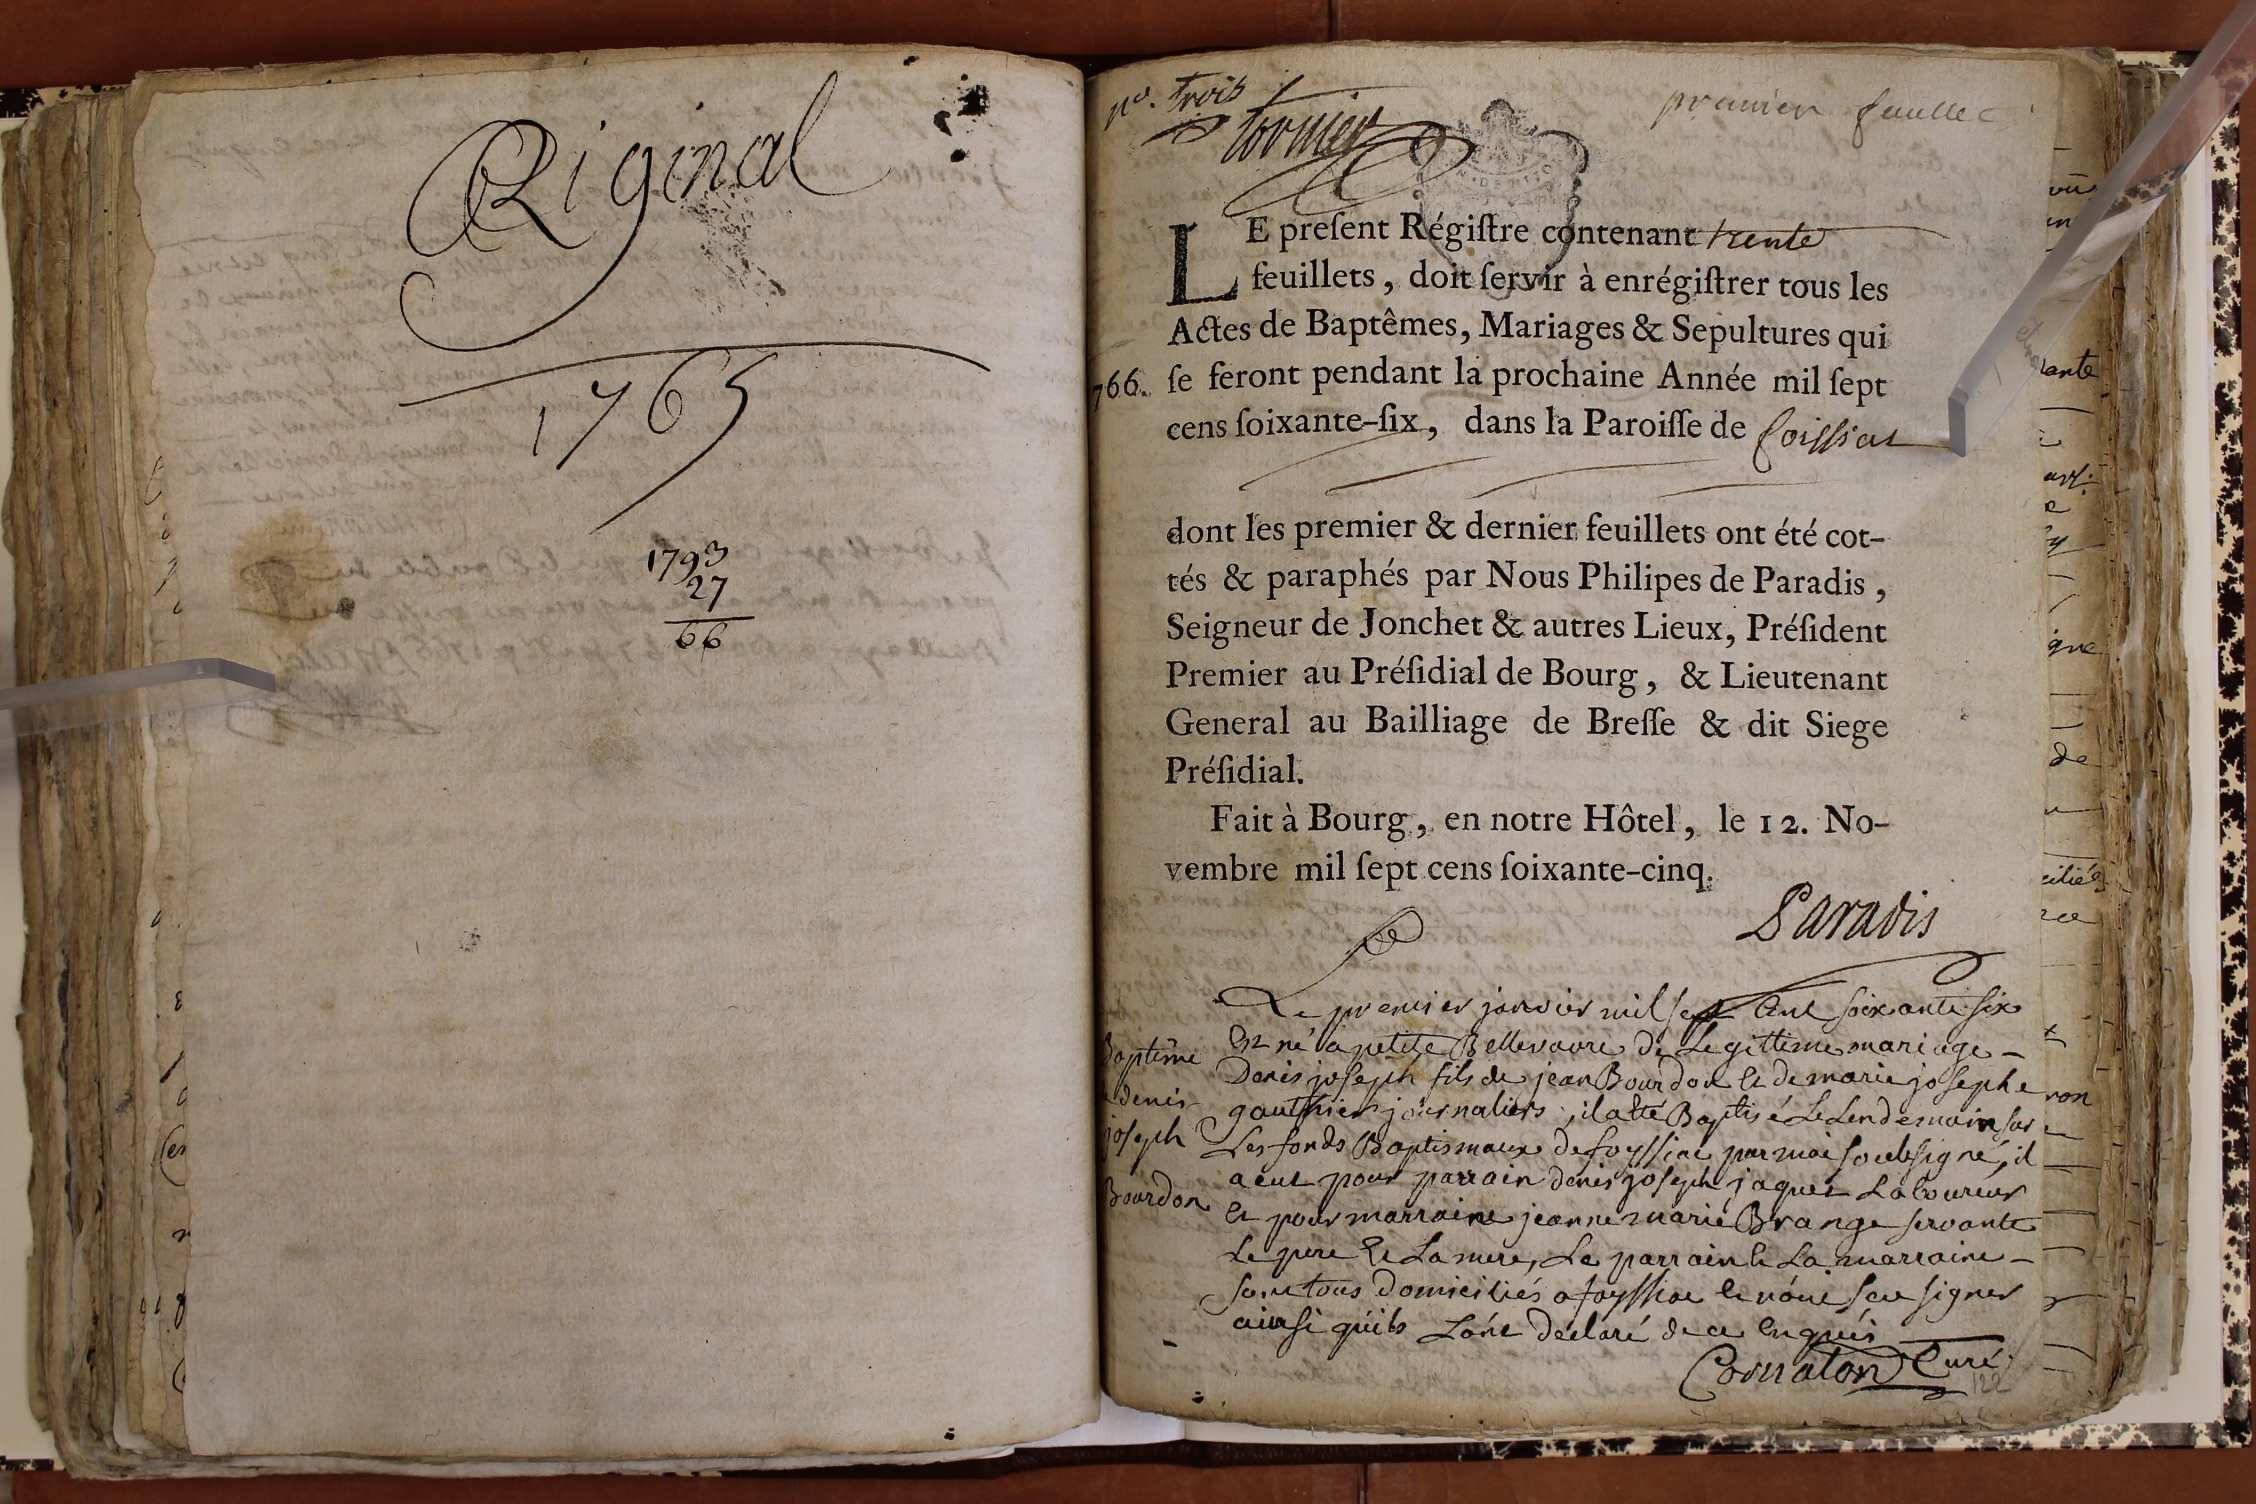 ORiginal
1765
1793
27
66
no. trois
premier feuillet
LE preſent Régiſtre contenant trente
feuillets, doit ſervir à enrégiſtrer tous les
Actes de Baptêmes, Mariages & Sepultures qui
766. ſe feront pendant la prochaine Année mil ſept
cens ſoixante-ſix, dans la Paroiſſe de foissiat
dont les premier & dernier feuillets ont été cot-
tés & paraphés par Nous Philipes de Paradis,
Seigneur de Jonchet & autres Lieux, Préſident
Premier au Préſidial de Bourg, & Lieutenant
General au Bailliage de Breſſe & dit Siege
Préſidial.
Fait à Bourg, en notre Hôtel, le 12. No-
vembre mil ſept cens ſoixante-cinq.
Paradis
Baptême
denis
joseph
Bourdon
Le premier janvier mil sept Cent soixante six
Est né a petite Bellevavre de Legittime mariage
Denis joseph fils de jean Bourdon et de marie josephe
gauthier journaliers, il a Eté Baptisé Le Lendemain sur
Les fonds Baptismaux de foyssiat par moi soubsigné, il
a eut pour parrain denis joseph jaquet Laboureur
Et pour marraine jeanne marie Brange servante
Le pere Et La mere, Le parrain Et La marraine
sont tous domiciliés a foyssiat Et n'ont sceu signer
ainsi qu'ils L'ont déclaré de ce Enquis
Cornaton Curé
122